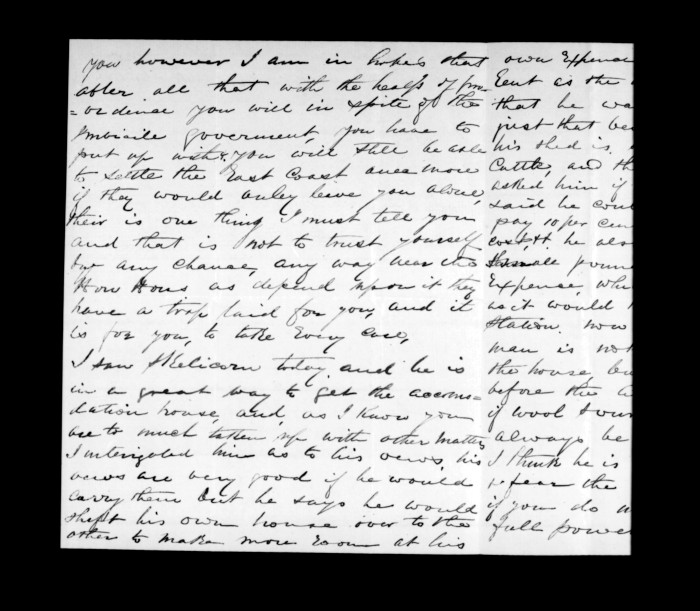 you however I am in hopes that
after all that with the healp of pro
=ordience you will in spite of the
Imbicile government, you have to
put up with, you will still be able
to settle the East Coast once more
if they would onley leive you alone,
their is one thing I must tell you
and that is not to trust yourself
by any chance, any way near the
How Hous as depend upon it they
have a trap laid for you, and it
is for you, to take Every care,
I saw Skelicorn today and he is
in a great way to get the accomo=
dation house, and, as I know you
are to much taken up with other matters
I interigoted him as to his vews, his
vews are very good if he would
carry them out he says he would
shift his own house over to the
other to make more room at his
own Expence
Eent as the
that he wa
just that be
his shed is.
Cattle, and th
asked him if
said he cou
pay 10 per cen
cost, he als
small poun
Expense, whi
as it would
Station. now
man is not
the house, bu
before the
if wool
always be
I think he is
fear the
if you do
full power